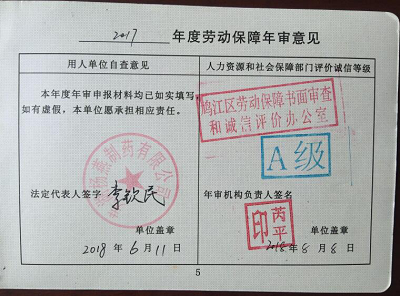 2017 年度劳动保障年审意见
用人单位自查意见
人力资源和社会保障部门评价诚信等级
本年度年审申报材料均已如实填写,
如有虚假,本单位愿承担相应责任。
鸠江区劳动保障书面审查
和诚信评价办公室
A级
制药有限公司
法定代表人签字 李钦民
年审机构负责人签名
芮平印
单位盖章
单位盖章
2018 年 6 月 11 日
2018 年 8 月 8 日
5